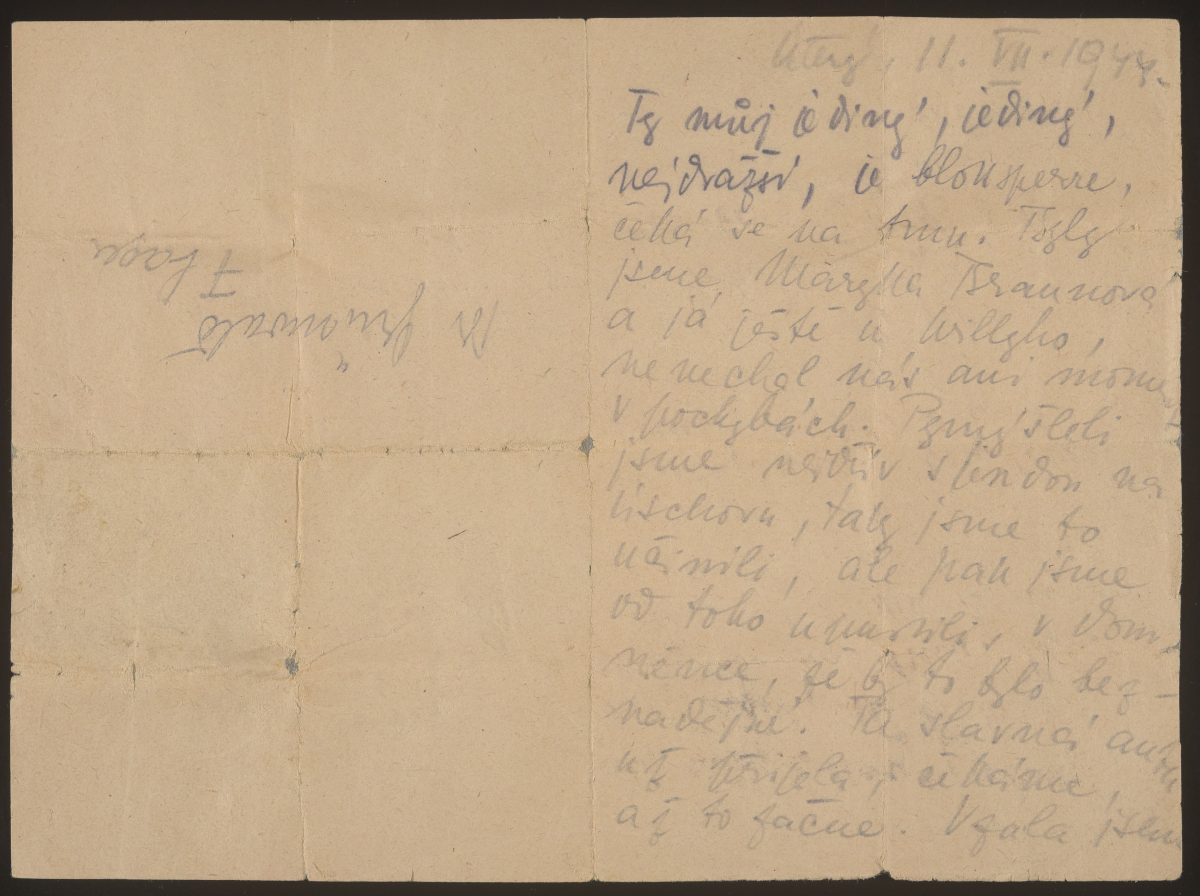 Úterý, 11. VII. 1944.
Ty můj jediný, jediný,
nejdražší, je bloksperre,
čeká se na tmu. Byly
jsme Margka Braunová
a já ještě u Willyho,
nenechal nás ani
v pochybách. Pomýšleli
jsme nejdřív s na
, taky jsme to
učinili, ale pak jsme
od toho upustili, v dom-
něnce, že by to bylo bez-
nadějné. Ta slavná auta
už přijela, čekáme,
až to začne. Vzala jsem
Dr Grünwald